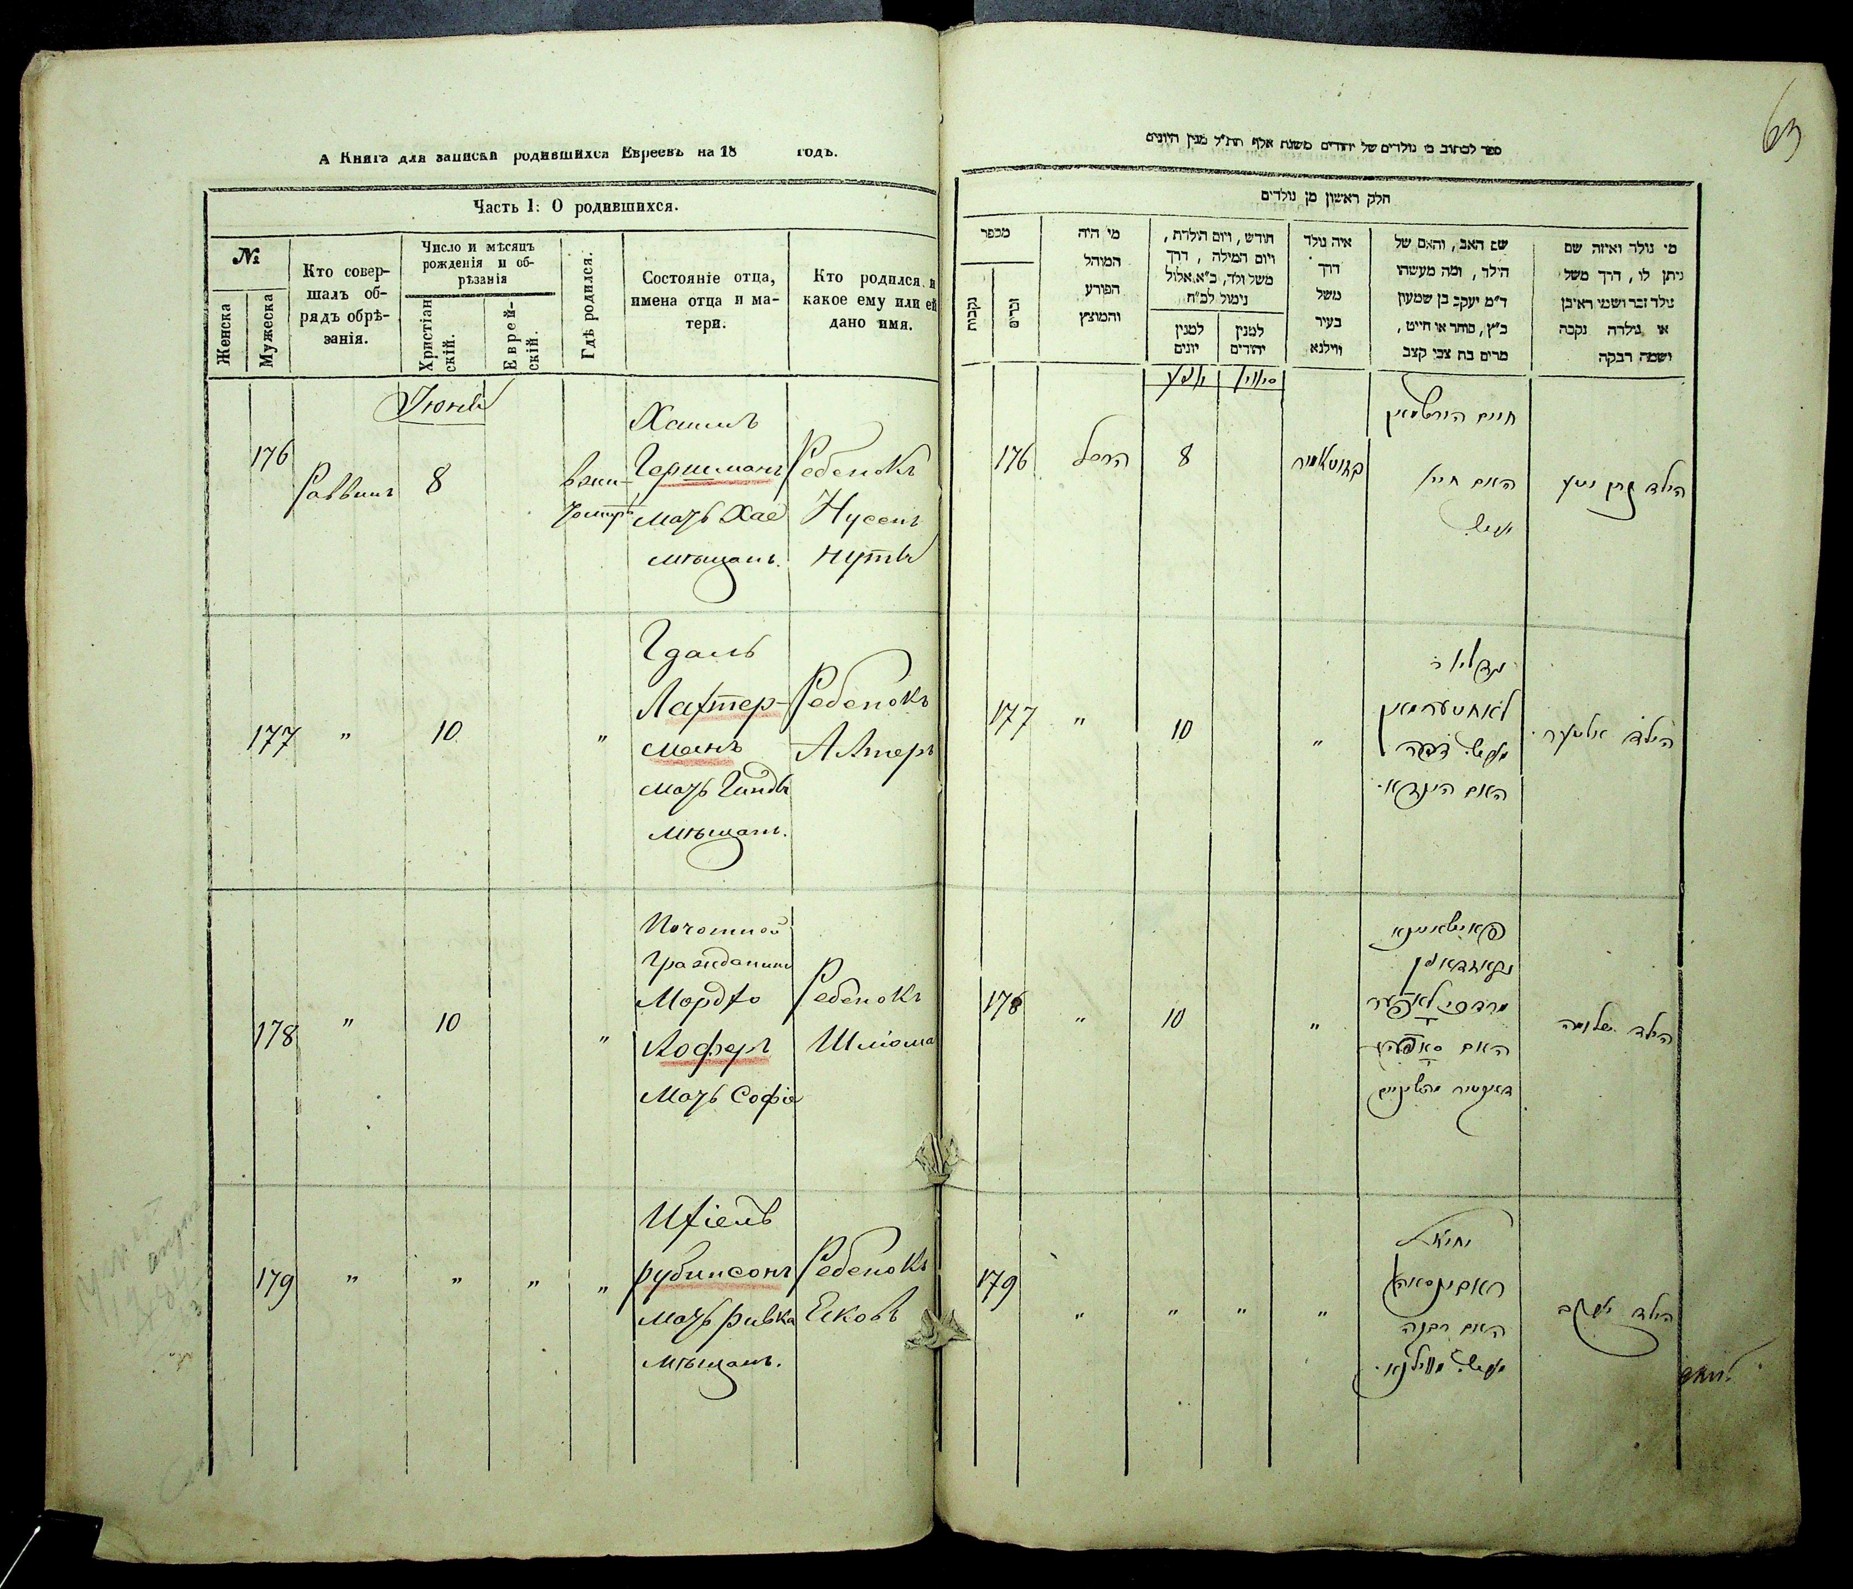 А Книга для записки родившихся Евреевъ на 18 годъ.
Часть 1: О родившихся.
№
Женска
Мужеска
Кто совер-
шалъ об-
рядъ обрѣ-
занія.
Число и мѣсяцъ
рожденія и об-
рѣзанія
Христіан
скій.
Еврей-
скій.
Гдѣ родился.
Состояніе отца,
имена отца и ма-
тери.
Кто родился и
какое ему или ей
дано имя.
Іюнь
176
Раввинъ
8
Хаимъ
Гершманъ
мать Хая
мѣщан.
Ребенокъ
Нусенъ
Нута
177
"
10
"
Гдаль
Лахтер-
манъ
мать Гинда
мѣщан.
Ребенокъ
Алтеръ
178
"
10
"
Почотной
Гражданинъ
Мордхо
Коферъ
Мать Софія
Ребенокъ
Шліома
179
"
"
"
"
Ихіель
Рубинсонъ
мать Ривка
мѣщан.
Ребенокъ
Ековъ
63
ספר לכתוב מי נולדים של יהודים משנת אלף תת"ל מנין היונים
חלק ראשון מן נולדים
מספר
נקבות
זכרים
מי היה
המוהל
הפורע
והמוצץ
חודש, ויום הולדת,
ויום המילה, דרך
משל ולד, כ"א אלול
נימול לכ"ח
למנין
יונים
למנין
יהודים
איה נולד
דרך
משל
בעיר
ווילנא
שם האב, והאם של
הילד, ומה מעשהו
ד"מ יעקב בן שמעון
כ"ץ, סוחר או חייט,
מרים בת צבי קצב
מי נולד ואיזה שם
ניתן לו, דרך משל
נולד זכר ושמו ראובן
או נולדה נקבה
ושמה רבקה
סיוון
176
8
חיים הירשמאן
האם חיי'
הילד נתן נטע
177
"
10
"
גדליה
לאחטערמאן
האם הינדא
הילד אלטער
178
"
10
"
האם סאפיע
הילד שלמה
179
"
"
"
"
יחיאל
ראבינסאהן
האם רבקה
הילד יעקב